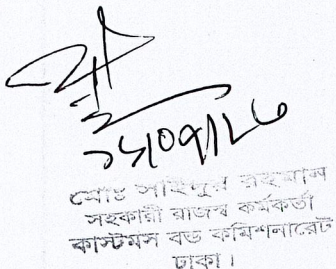 ১৬/০৭/২৩
মোঃ সাইদুর রহমান
সহকারী রাজস্ব কর্মকর্তা
কাস্টমস বন্ড কমিশনারেট
ঢাকা।